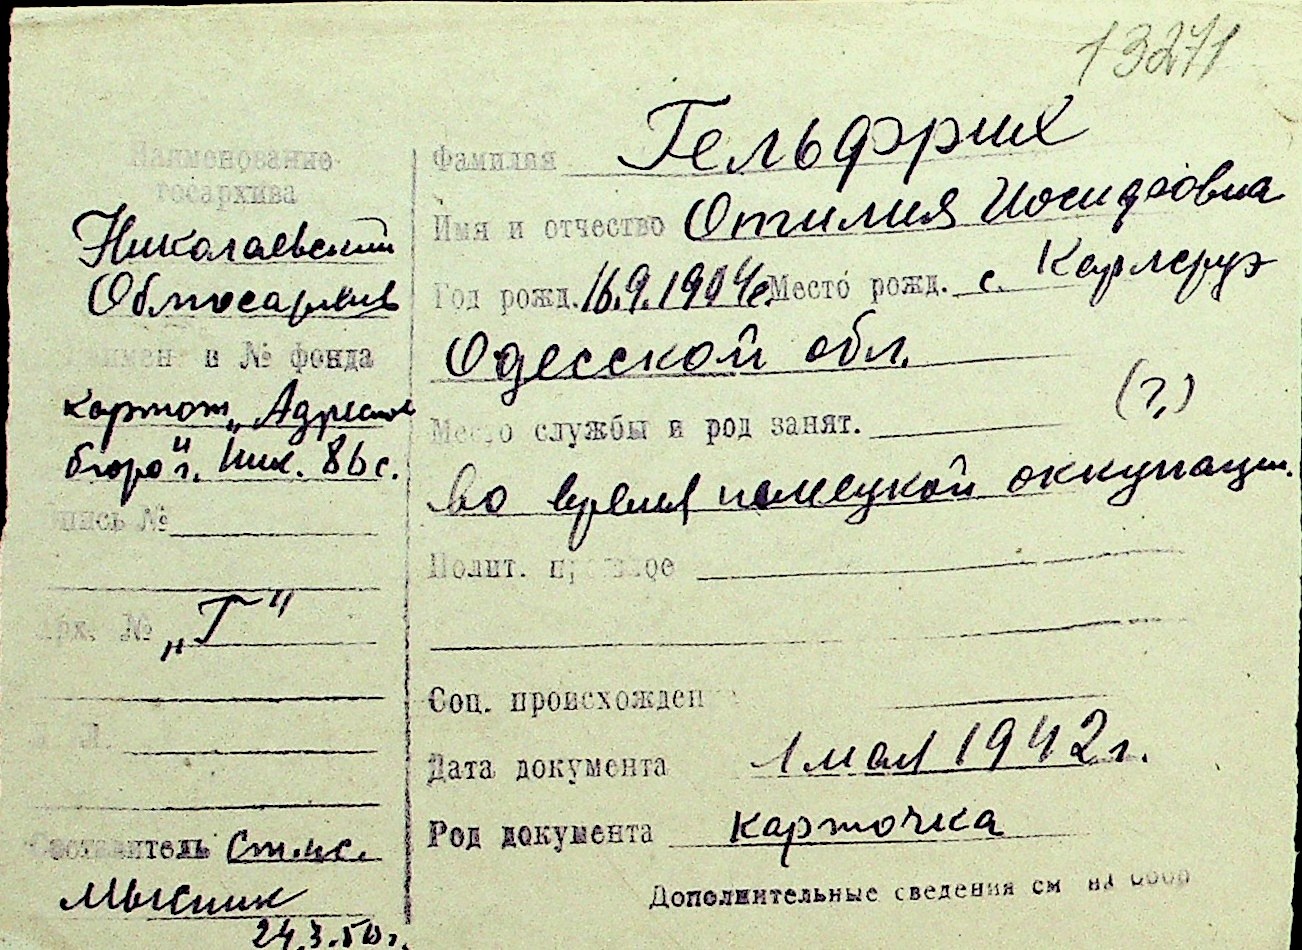 13271
Наименование
госархива
Николаевский
Облгосархив
Наимен и № фонда
картот. „Адресное
бюро" г. Ник. 86 с.
Опись №
Арх. № „Г"
Л. Л.
Составитель Ст. н. с.
Мысник
24.3.50 г.
Фамилия Гельфрих
Имя и отчество Отилия Иосифовна
Год рожд. 16.9.1904 г. Место рожд. с. Карлсруэ
Одесской обл.
(?)
Место службы и род занят.
во время немецкой оккупации.
Полит. прошлое
Соц. происхожден
Дата документа 1 мая 1942 г.
Род документа карточка
Дополнительные сведения см на обор